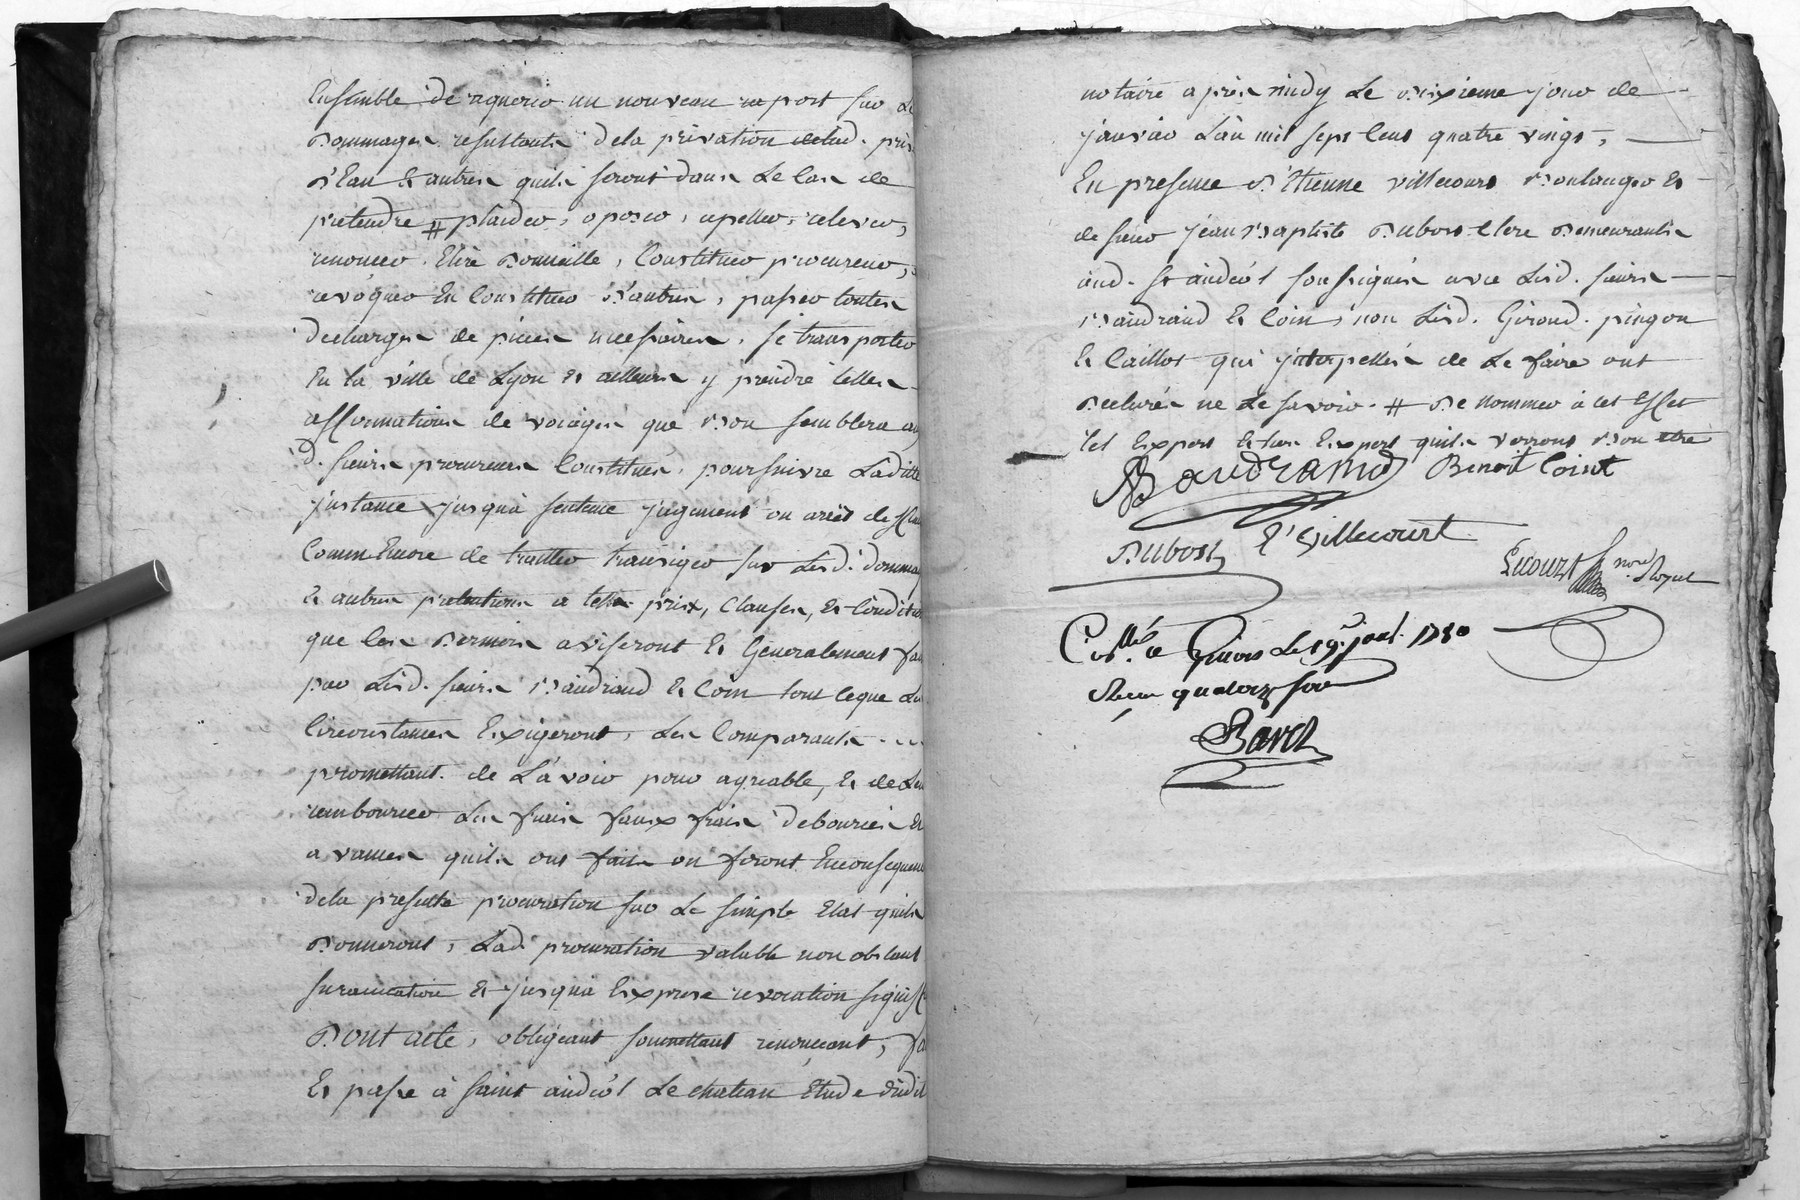 Ensemble de requerir un nouveau raport sur Le
Dommages resultants dela privation dud. pris
D'Eau & autres quils seront dans Le Cas de
pretendre # plaider, oposer, apeller, relever,
renoncer. Elire Domicille, Constituer procureur,
revoquer En Constituer D'autres, passer toutes
Decharges de pieces necessaires, se transporter
En la ville de Lyon & ailleurs y prendre telles
affirmations de voiages que Bon semblera au
d. sieurs procureurs Constitués, poursuivre Laditte
jnstance jusqua sentence jugement ou arrêt deff
Comm'Encore de traitter transiger sur Lesd. domma
& autres pretentions a tels prix, Clauses, & Condit
que Ces Derniers aviseront & Generalement fa
par Lesd. sieurs Baudrand & Coin tout ceque Les
Circonstances Exigeront, Les Comparants
promettant de L'avoir pour agreable, & de Leu
rembourcer Les frais faux frais Debourcés Et
avances quils ont faits ou feront Enconsequen
dela presente procuration sur Le simple Etat quils
Donneront, Lad. procuration valable non obstant
surannation & jusqua Expresse revocation signiff
Dont acte, obligeant soumettant renonceant, fa
Et passé à saint andéol Le chateau Etude dudit
notaire après midy Le dixieme jour de
janvier L'an mil sept Cent quatre vingt,
En presence D'Etienne villecourt Boulanger &
de sieur jean Baptiste Dubost Clerc Demeurants
aud. St andéol soussignés avec Lesd. sieurs
Baudrand & Coin, non Lesd. Giroud. pingon
& Caillot qui jnterpellés de Le faire ont
Declarés ne Le savoir. # De nommer à cet Effet
tel Expert & tiers Expert quils verront Bon etre
Baudrand Benoit Coint
Dubost E' Villecourt
nore. Royal
C. a Givors Le 19. janv. 1780
Recu quatorze sous